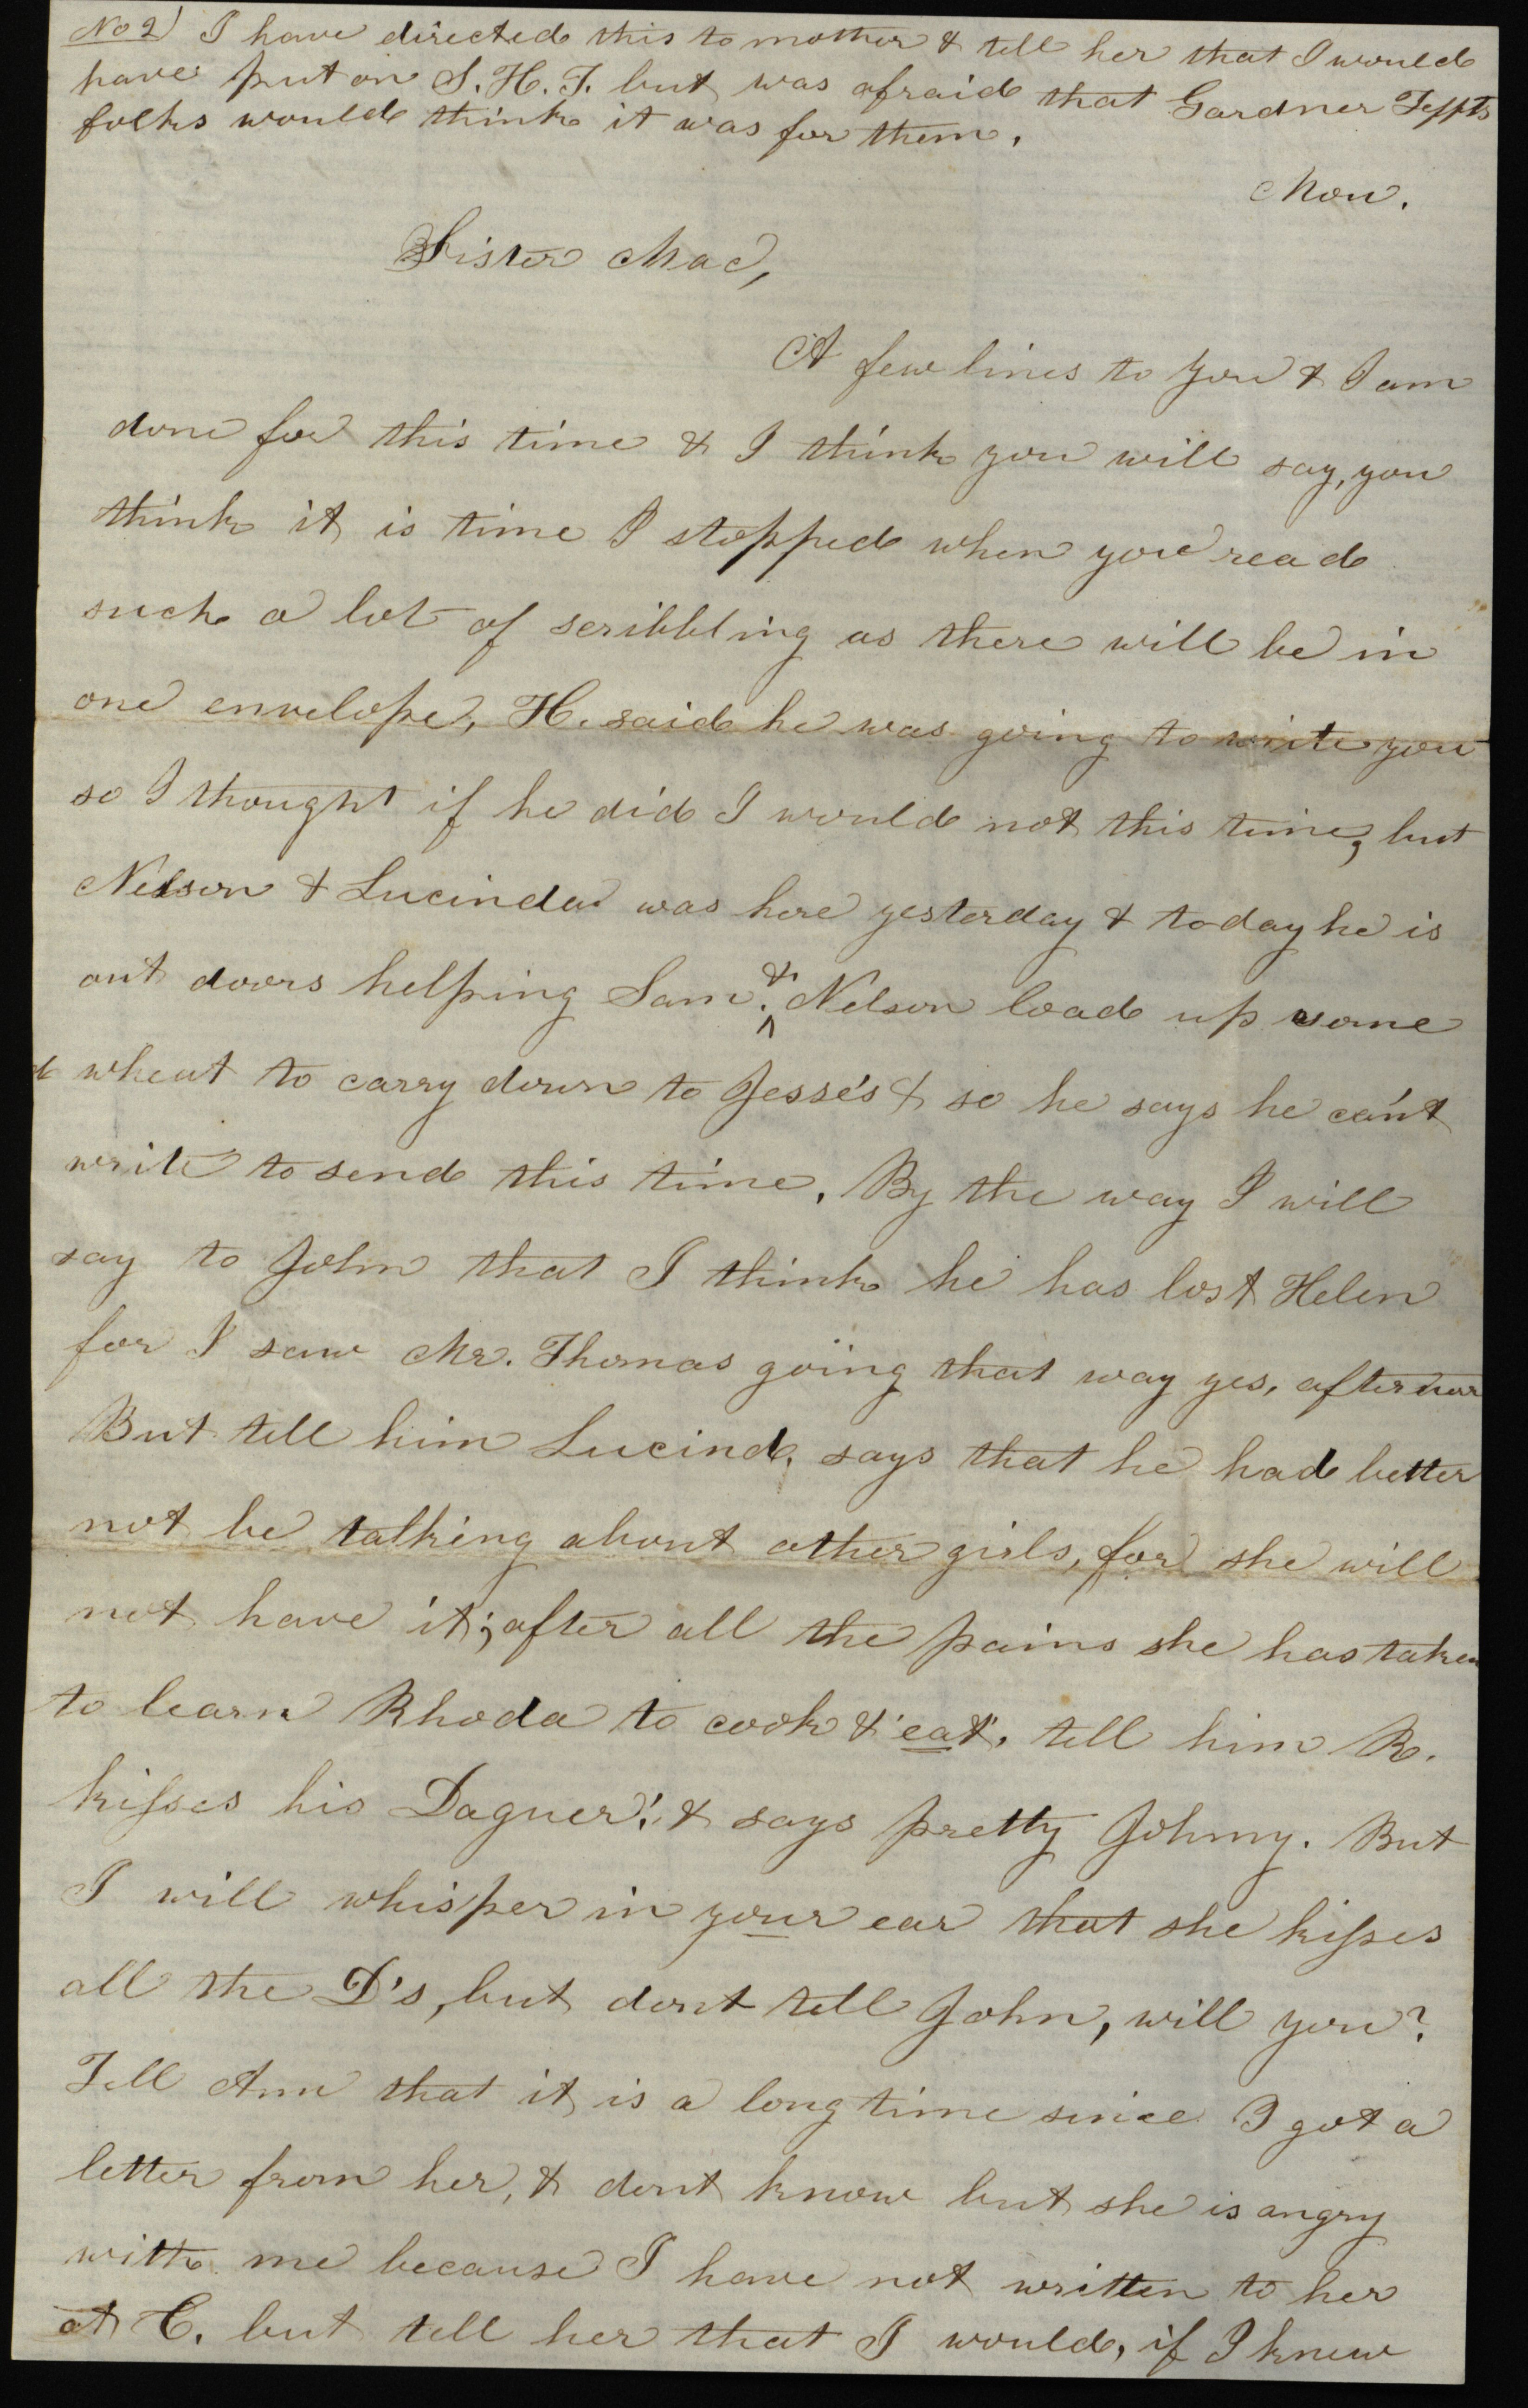 No 2) I have directed this to mother & tell her that I would
have put on S. H. T. but was afraid that Gardner Teffts
folks would think it was for them.
Mon.
Sister Mac,
A few lines to you & I am
done for this time & I think you will say, you
think it is time I stopped when you read
such a lot of scribbling as there will be in
one envelope, H. said he was going to write you
so I thought if he did I would not this time, but
Nelson & Lucinda was here yesterday & to-day he is
out doors helping Sam. & Nelson load up some
wheat to carry down to Jesse's & so he says he can't
write to send this time. By the way I will
say to John that I think he has lost Helen
for I saw Mr. Thomas going that way yes. afternoon
But tell him Lucind. says that he had better
not be talking about other girls, for she will
not have it; after all the pains she has taken
to learn Rhoda to cook & "eat". tell him R.
kisses his Daguer! & says pretty Johny. But
I will whisper in your ear that she kisses
all the D's, but dont tell John, will you?
Tell Ann that it is a long time since I got a
letter from her, & dont know but she is angry
with me because I have not written to her
at C. but tell her that I would, if I knew